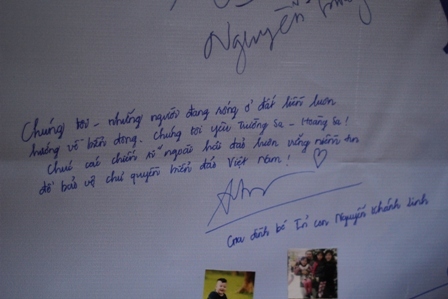 Nguyễn
Chúng tôi - những người đang sống ở đất liền luôn
hướng về biển đông. Chúng tôi yêu Trường Sa - Hoàng Sa!
Chúc các chiến sĩ ngoài hải đảo luôn vững niềm tin
để bảo vệ chủ quyền biển đảo Việt Nam!
Gia đình bé Tít con Nguyễn Khánh Linh